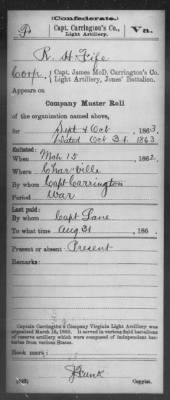 (Confederate.)
Capt. Carrington's Co.,
Light Artillery.
Va.
R. H. Fife
Corp., Capt. James McD. Carrington's Co.
Light Artillery, Jones' Battalion.
Appears on
Company Muster Roll
of the organization named above,
for Sept & Oct, 1863.
Dated Oct 31, 1863
Enlisted:
When Mch 15, 1862.
Where Char-ville
By whom Capt Carrington
Period War
Last paid:
By whom Capt Lane
To what time Aug 31, 186
Present or absent Present
Remarks:
Captain Carrington's Company Virginia Light Artillery was
organized March 15, 1862. It served in various field battalions
of reserve artillery which were composed of independent bat-
teries from various States.
Book mark:
(642)
Copyist.